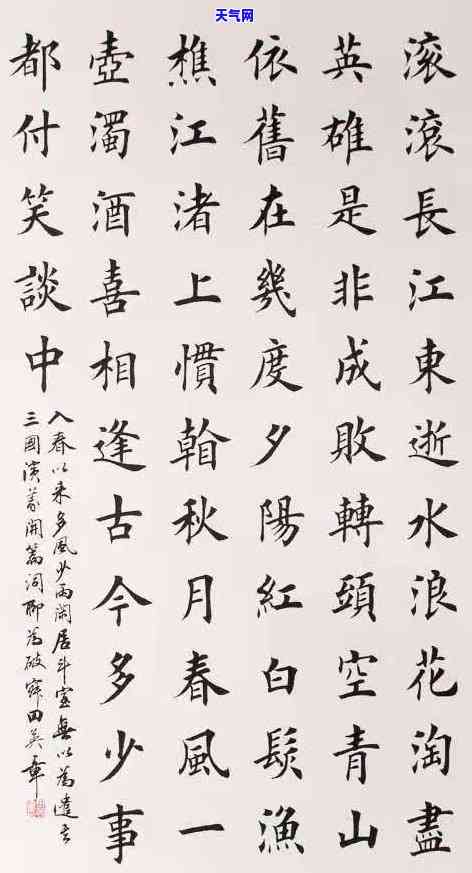 天气网
滚滾長江東逝水浪花淘盡
英雄是非成敗轉頭空青山
依舊在幾度夕陽紅白髮漁
樵江渚上慣看秋月春風一
壺濁酒喜相逢古今多少事
都付笑談中
入春以来多風少雨閑居斗室無以為遣書
三國演義開篇詞聊為破寂田英章